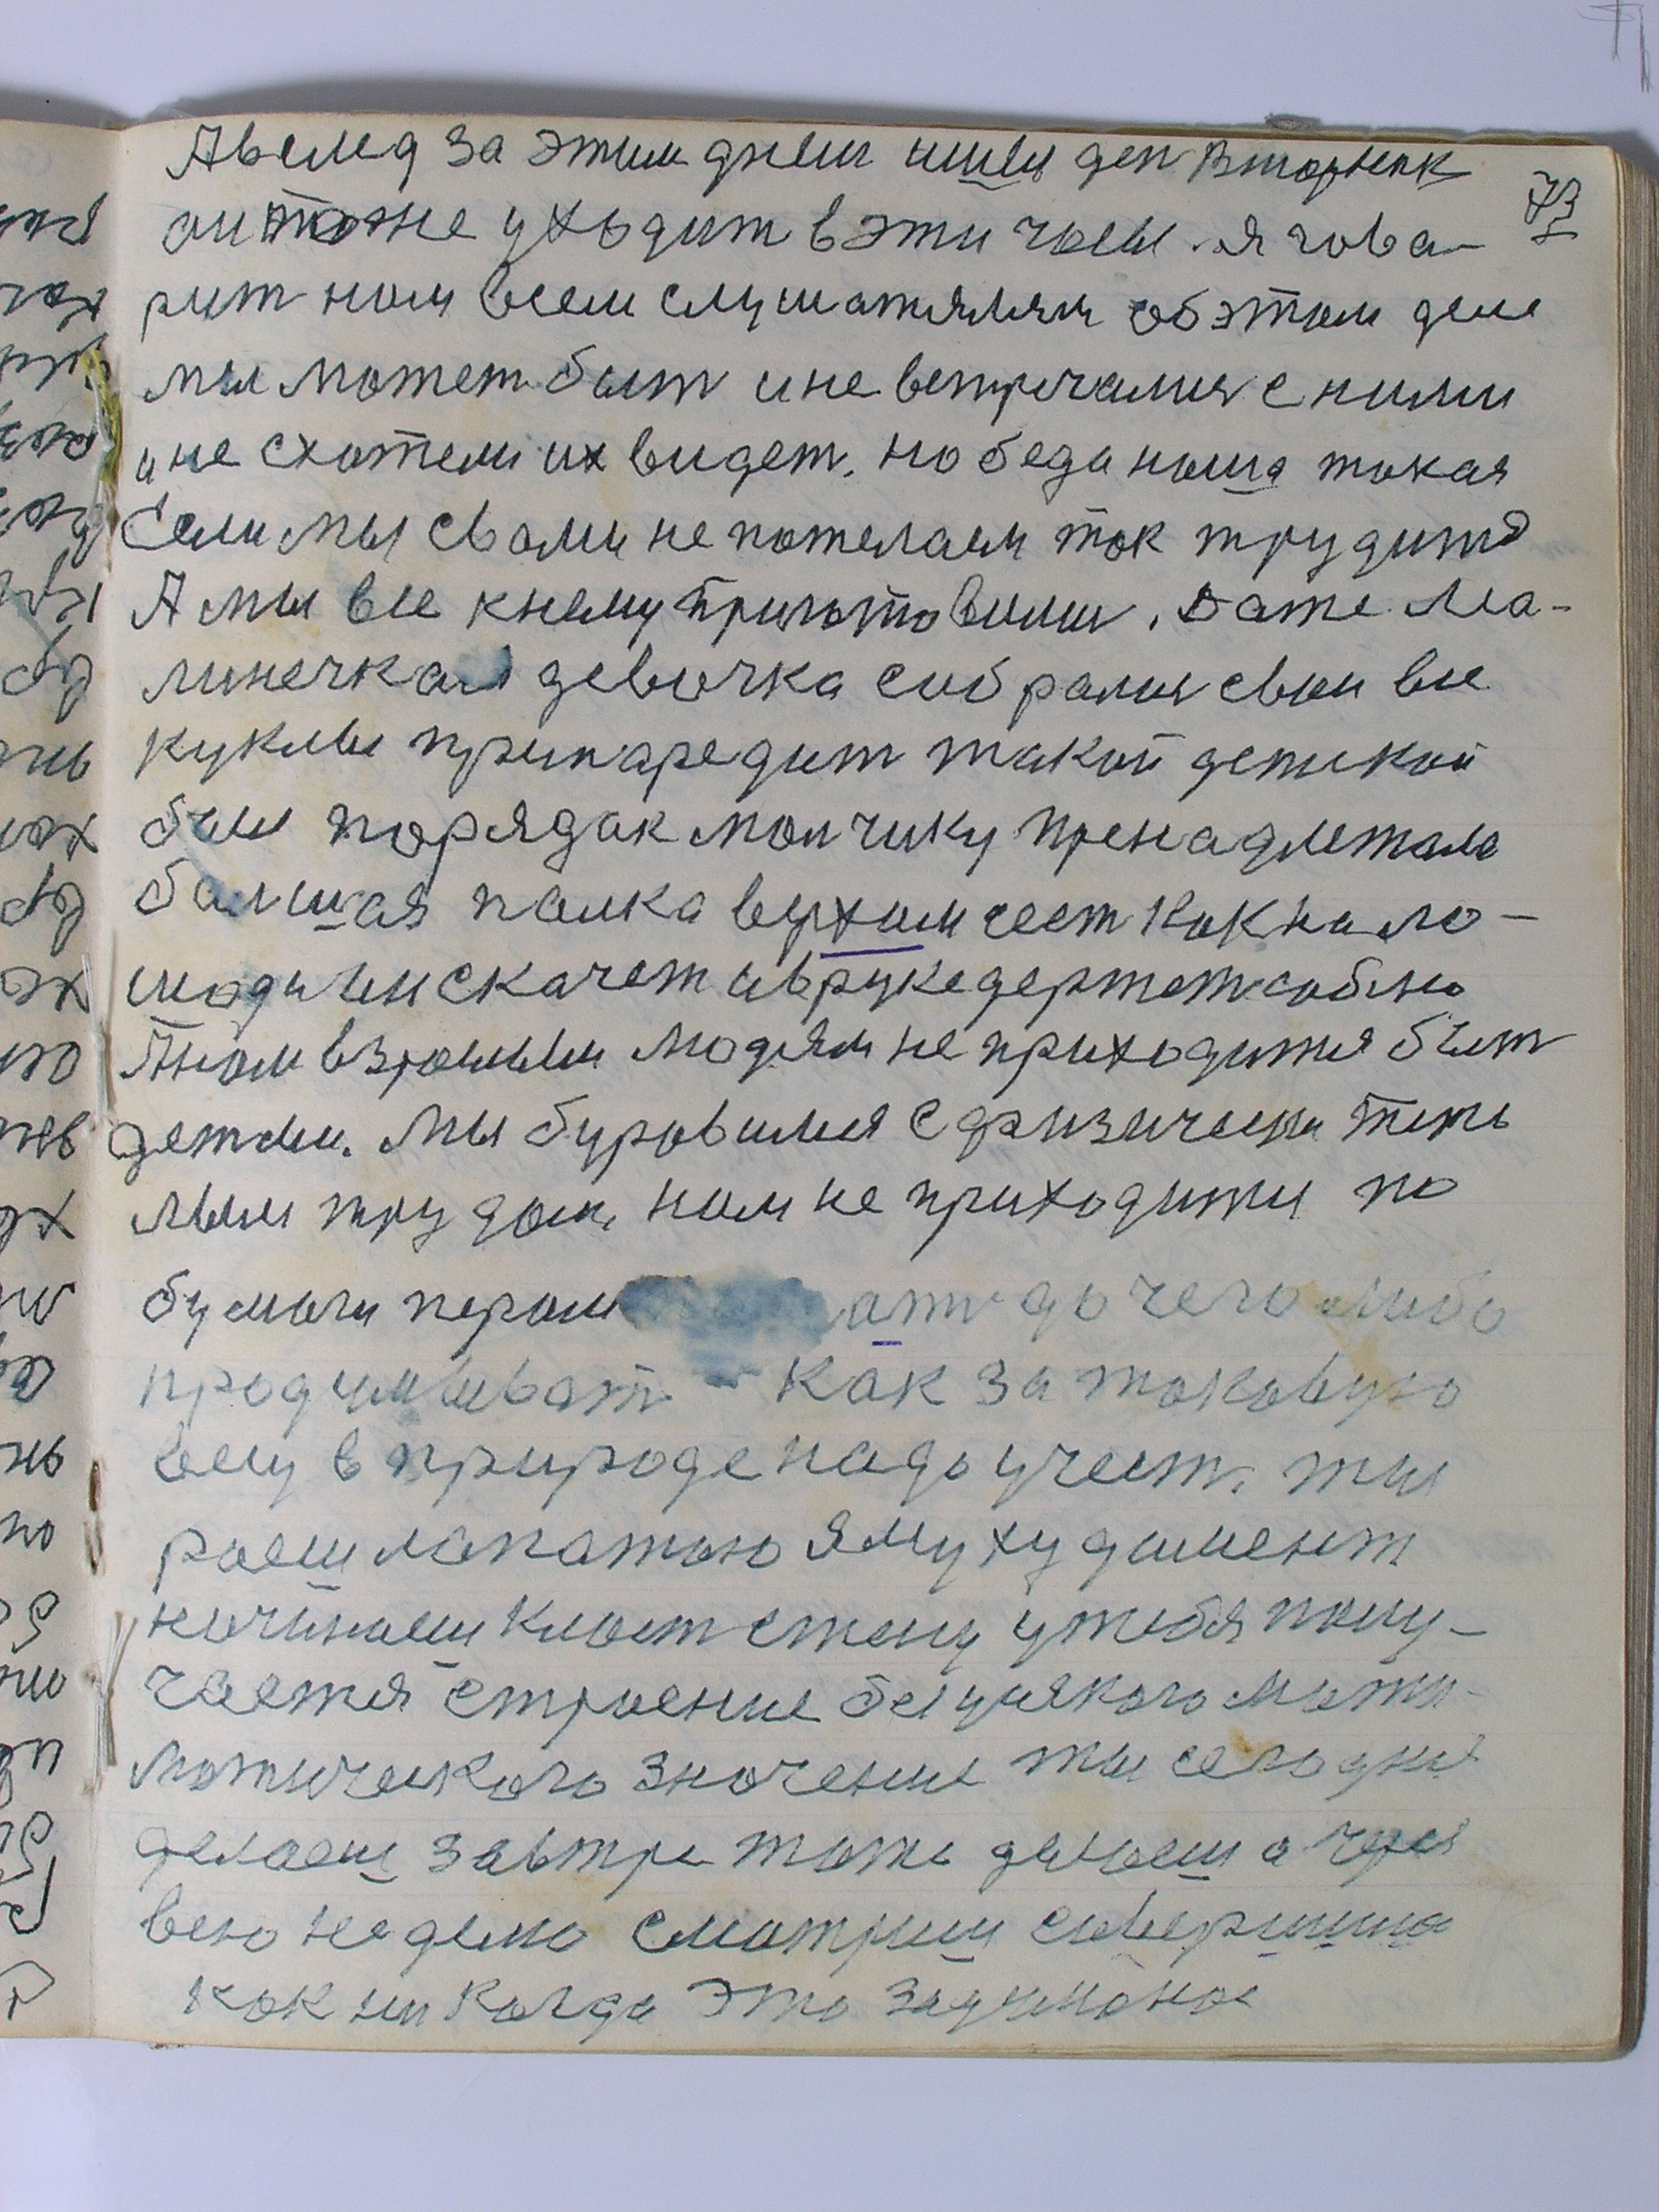 73
А вслед за этим днем ишел ден Вторник
он тоже уходит в эти часы. я гова-
рит ном всем слушателям об этом деле
мы можетъ быт и не встречалися с ними
и не схотели их видет. но беда ноша такая
Если мы с вами не пожелаем ток трудится
А мы все к нему приготовили. Даже ма-
линечкая девочка собралися свои все
куклы припаредит такой детикой
был порядак молчику пренадлежала
балшая палка верхом сест как на ло-
шади ен скачет и в руке держет саблю
А ном взрослым людям не приходится быт
детми. Мы буровилися с физически тяжо
лым трудом, ном не приходится по
бумаги пером ат до чего либо
продумыват как за таковую
силу в природе надо учест. ты
роеш лапатою яму худамент
начинаеш класт стену у тебя полу-
чается строение без всякого мати-
матического значение ты сегодня
делаеш завтре тоже делаеш а через
всю неделю смотриш совершина
как ни когда это задуманое